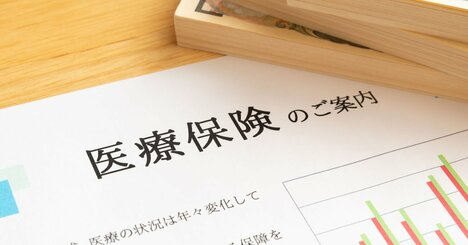 医療保険のご案内
医療の状況は年々変化して
保障を